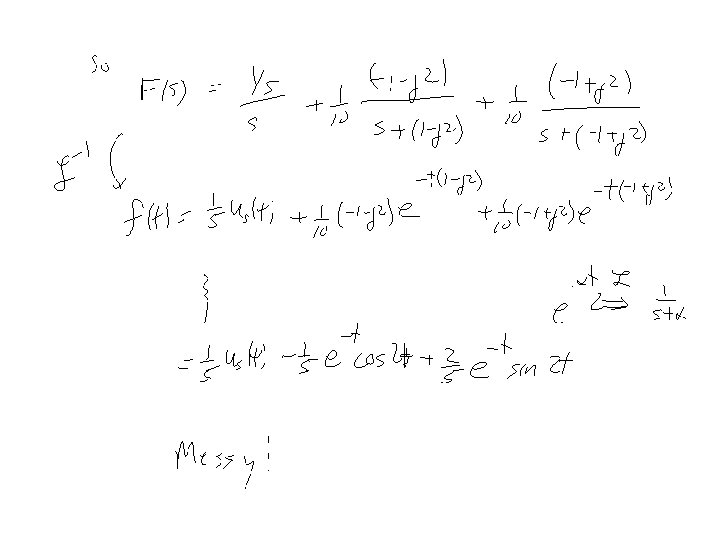 So
F(s) = 1/5 / s + 1/10 (-1-j2) / s+(1-j2) + 1/10 (-1+j2) / s+(-1+j2)
ℒ^-1
f(t) = 1/5 u_s(t) + 1/10 (-1-j2) e^-t(1-j2) + 1/10 (-1+j2) e^-t(-1+j2)
e^-αt ℒ ⇔ 1/s+α
= 1/5 u_s(t) - 1/5 e^-t cos 2t + 2/5 e^-t sin 2t
Messy!